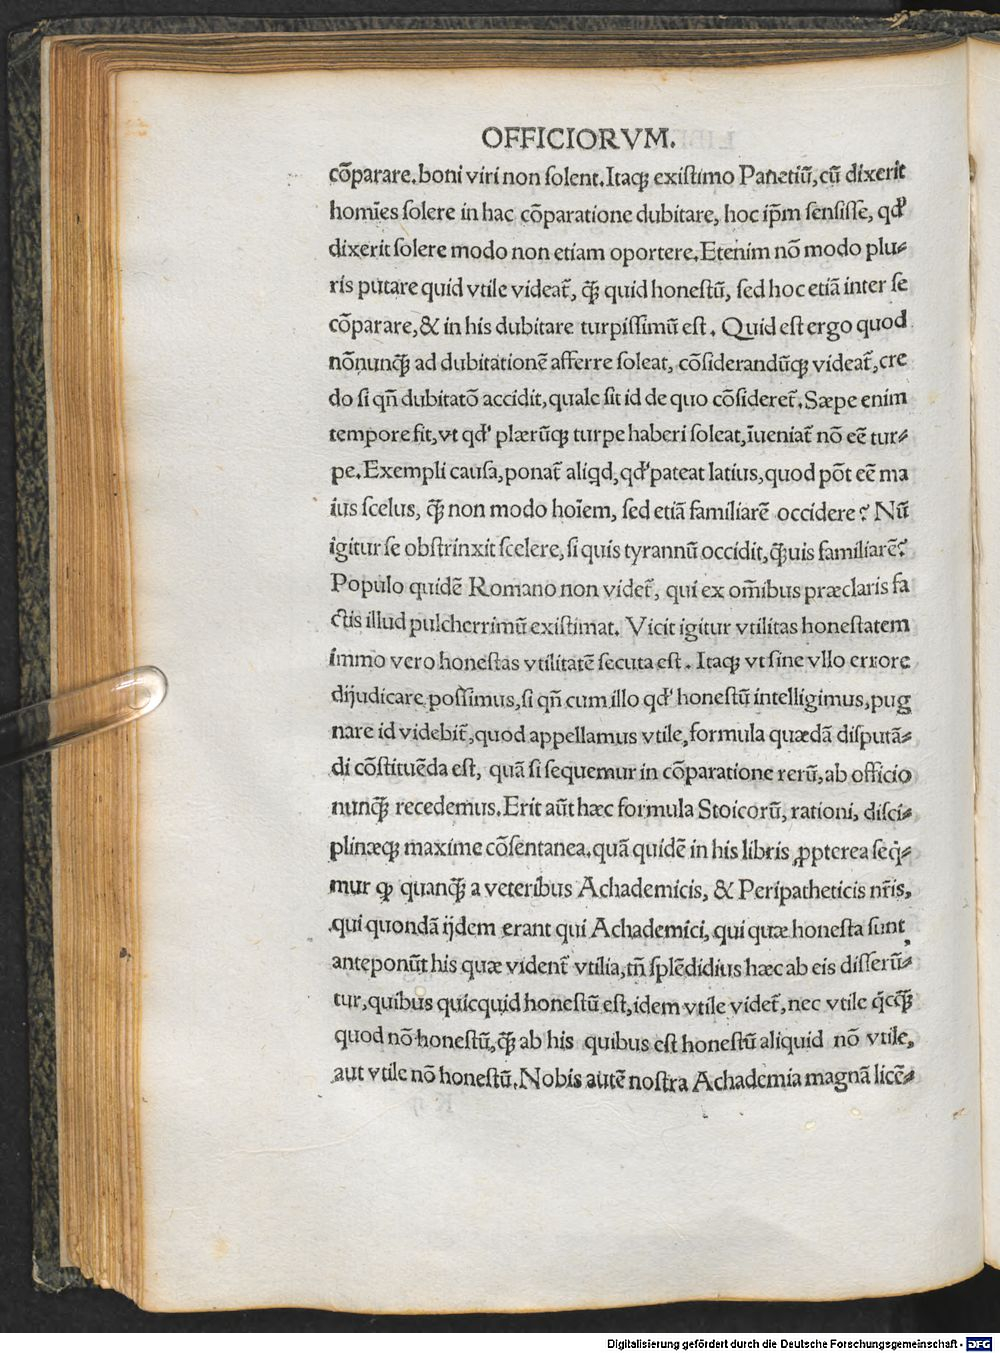 OFFICIORVM.
cōparare. boni viri non ſolent. Itaqꝫ exiſtimo Panetiū, cū dixerit
homīes ſolere in hac cōparatione dubitare, hoc ip̄m ſenſiſſe, qd'
dixerit ſolere modo non etiam oportere. Etenim nō modo plu⸗
ris putare quid vtile videat̄, q̄ꝫ quid honeſtū, ſed hoc etiā inter ſe
cōparare, & in his dubitare turpiſſimū eſt. Quid eſt ergo quod
nōnunq̄ꝫ ad dubitationē afferre ſoleat, cōſiderandūqꝫ videat̄, cre
do ſi qn̄ dubitatō accidit, quale ſit id de quo cōſideret̄. Sæpe enim
tempore fit, vt qd' plærūqꝫ turpe haberi ſoleat, īueniat̄ nō eē tur⸗
pe. Exempli cauſa, ponat̄ aliqd, qd' pateat latius, quod pōt eē ma
ius ſcelus, q̄ꝫ non modo hoīem, ſed etiā familiarē occidere? Nū
igitur ſe obſtrinxit ſcelere, ſi quis tyrannū occidit, q̄ꝫuis familiarē?
Populo quidē Romano non videt̄, qui ex om̄ibus præclaris fa
ctis illud pulcherrimū exiſtimat. Vicit igitur vtilitas honeſtatem
immo vero honeſtas vtilitatē ſecuta eſt. Itaqꝫ vt ſine vllo errore
dijudicare poſſimus, ſi qn̄ cum illo qd' honeſtū intelligimus, pug
nare id videbit̄, quod appellamus vtile, formula quædā diſputā⸗
di cōſtituēda eſt, quā ſi ſequemur in cōparatione rerū, ab officio
nunq̄ꝫ recedemus. Erit aūt hæc formula Stoicorū, rationi, diſci⸗
plinæqꝫ maxime cōſentanea. quā quidē in his libris ꝓpterea ſeq̇⸗
mur ꝙ quanq̄ꝫ a veteribus Achademicis, & Peripatheticis nr̄is,
qui quondā ijdem erant qui Achademici, qui quæ honeſta ſunt,
anteponūt his quæ vident̄ vtilia, tn̄ ſplēdidius hæc ab eis diſſerū⸗
tur, quibus quicquid honeſtū eſt, idem vtile videt̄, nec vtile q̇cq̄ꝫ
quod nō honeſtū, q̄ꝫ ab his quibus eſt honeſtū aliquid nō vtile,
aut vtile nō honeſtū. Nobis autē noſtra Achademia magnā licē⸗
Digitalisierung gefördert durch die Deutsche Forschungsgemeinschaft - DFG